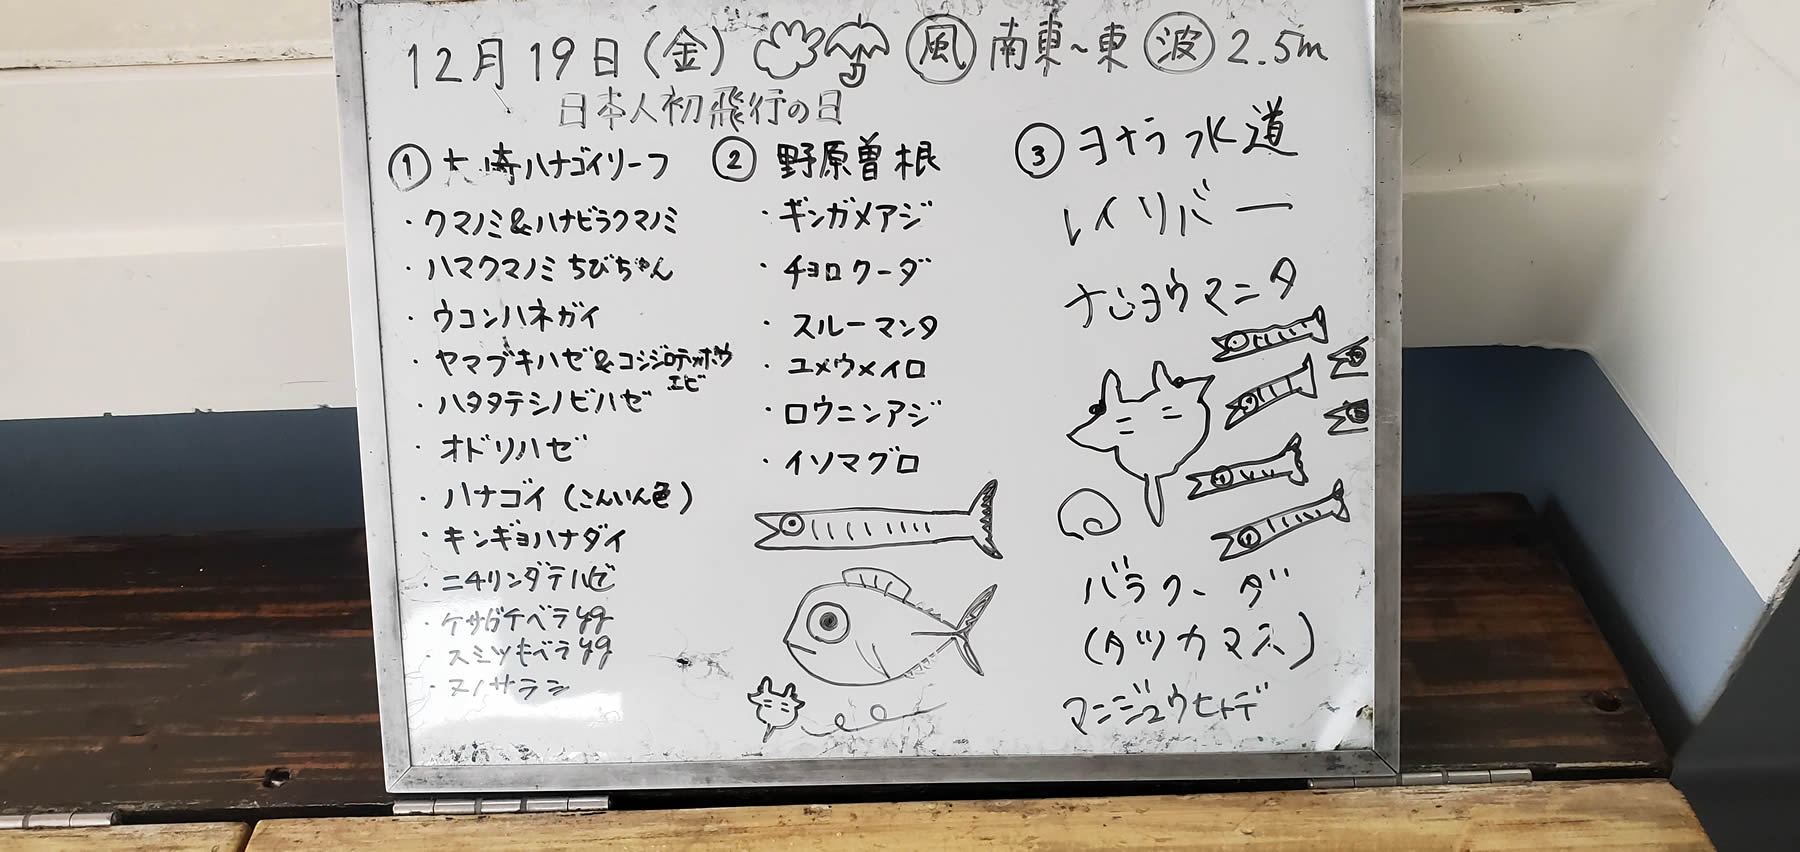 12月19日(金) 風 南東~東 波 2.5m
日本人初飛行の日
① 大崎ハナゴイリーフ
・クマノミ&ハナビラクマノミ
・ハマクマノミ ちびちゃん
・ウコンハネガイ
・ヤマブキハゼ&コシジロテッポウ
エビ
・ハタタテシノビハゼ
・オドリハゼ
・ハナゴイ (こんいん色)
・キンギョハナダイ
・ニチリンダテハゼ
・ケサガケベラyg
・スミツキベラyg
・ヌノサラシ
② 野原曽根
・ギンガメアジ
・チョロクーダ
・スルーマンタ
・ユメウメイロ
・ロウニンアジ
・イソマグロ
③ ヨナラ水道
レイリバー
マニタ
バラクーダ
(タツカマス)
マンジュウヒトデ